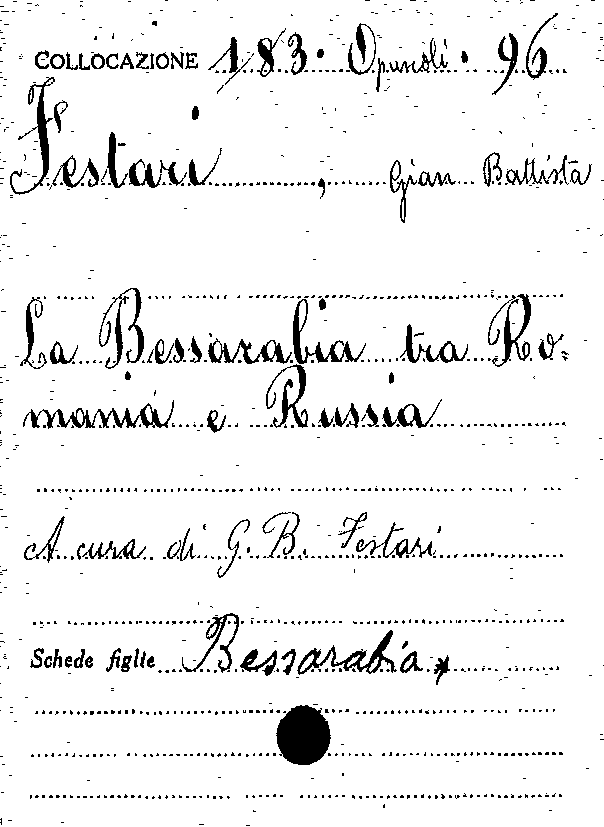 COLLOCAZIONE 183. Opuscoli. 96
Festari, Gian Battista
La Bessarabia tra Ro-
mania e Russia
A cura di G. B. Festari
Schede figlie Bessarabia*